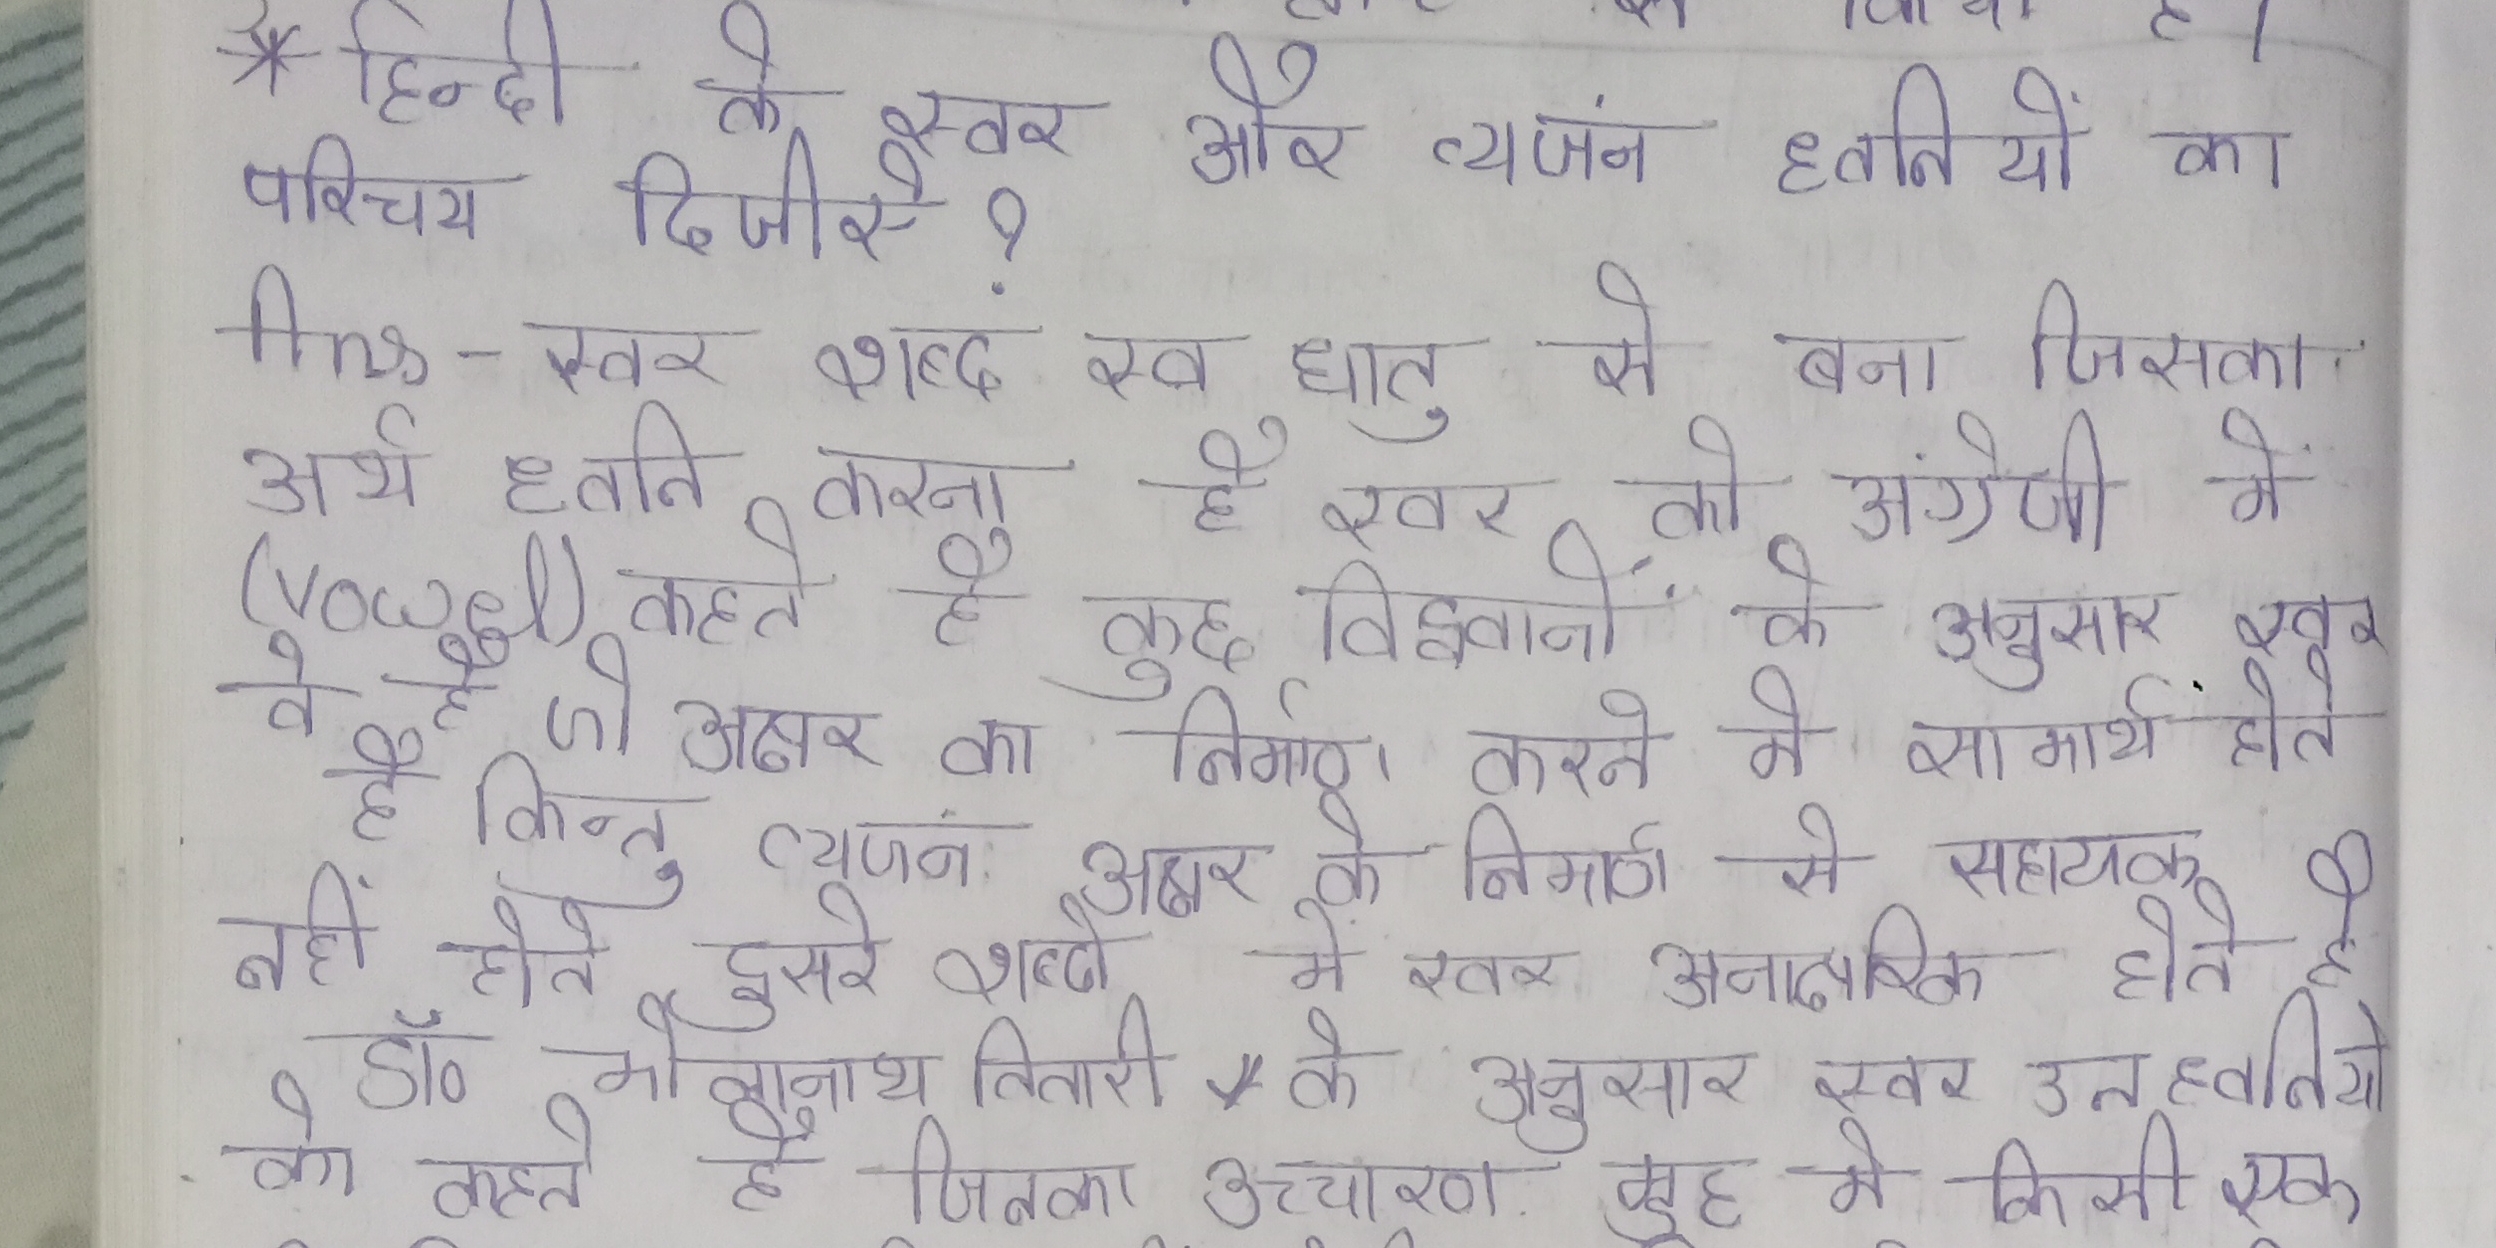 * हिन्दी के स्वर और व्यजंन ध्वनियों का
परिचय दिजीए ?
Ans - स्वर शब्दं स्व धातु से बना जिसका
अर्थ ध्वनि करना है स्वर को अंग्रेजी में
(Vowel) कहते है कुछ विद्ववानों के अनुसार स्वर
वे है जो अक्षर का निर्माण करने मे सामार्थ होते
है किन्तु व्यजंन अक्षर के निमार्ण से सहायक
नहीं होते दुसरे शब्दो में स्वर अनाक्षरिक होते है
डॉ० भोलानाथ तिवारी के अनुसार स्वर उन ध्वनियो
को कहते है जिनका उच्चारण मुह मे किसी एक